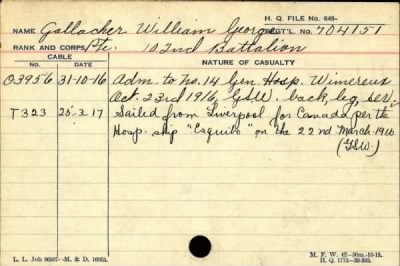 H. Q. FILE No. 649-
NAME Gallacher William George REGT'L. NO. 704151
RANK AND CORPS Pte. 102nd Battalion
CABLE
NO. DATE NATURE OF CASUALTY
O3956 31-10-16 Adm. to no. 14 Gen Hosp. Wimereux
Oct. 23rd 1916, GSW. back, leg, sev.
T323 25-3-17 Sailed from Liverpool for Canada per the
Hosp. ship "Esquibo" on the 22nd March 1916
(GSW.)
L. L. Job 86907-M. & D. 16965.
M. F. W. 42-50m.-10-15.
H. Q. 1772-39-893.